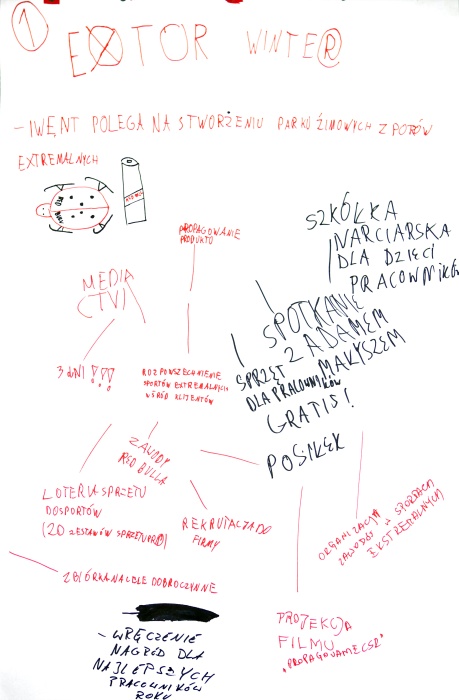 1
EXTOR WINTER
- IWĘNT POLEGA NA STWORZENIU PARKU ZIMOWYCH ZPOTÓW
EXTREMALNYCH
PROPAGOWANIE
PRODUKTU
SZKÓŁKA
NARCIARSKA
DLA DZIECI
PRACOWNIKÓW
MEDIA
(TV)
SPOTKANIE
Z ADAMEM
MAŁYSZEM
3 dNI !!!
ROZPOWSZECHNIENIE
SPORTÓW EXTREMALNYCH
WŚRÓD KLIENTÓW
SPRZĘT
DLA PRACOWNIKÓW
GRATIS!
ZAWODY
RED BULLA
POSIŁEK
LOTERIA SPRZĘTU
DO SPORTÓW
(20 ZESTAWÓW SPRZĘTU)
REKRUTACJA DO
FIRMY
ORGANIZACJA
ZAWODÓW
SPORTACH
EKSTREMALNYCH
ZBIÓRKA NA CELE DOBROCZYNNE
- WRĘCZENIE
NAGRÓD DLA
NAJLEPSZYCH
PRACOWNIKÓW
ROKU
PROJEKCJA
FILMU